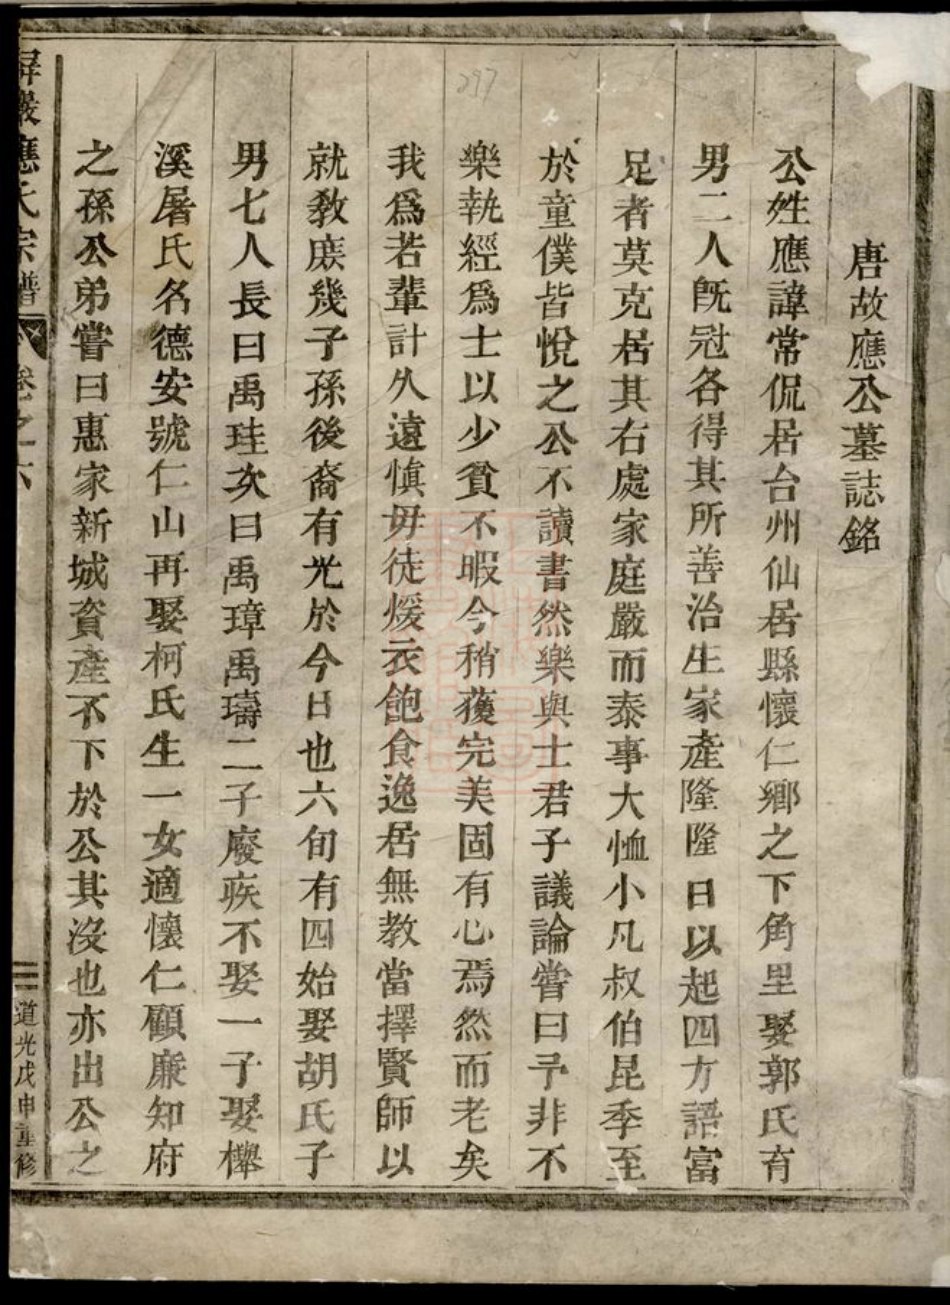 唐故應公墓誌銘
公姓應諱常侃居台州仙居縣懷仁鄉之下角里娶郭氏育
男二人旣冠各得其所善治生家產隆隆日以起四方語富
足者莫克居其右處家庭嚴而泰事大恤小凡叔伯昆季至
於童僕皆悅之公不讀書然樂與士君子議論嘗曰予非不
樂執經爲士以少貧不暇今稍獲完美固有心焉然而老矣
我爲若輩計久遠愼毋徒煖衣飽食逸居無教當擇賢師以
就教庶幾子孫後裔有光於今日也六旬有四始娶胡氏子
男七人長曰禹珪次曰禹璋禹璹二子廢疾不娶一子娶櫸
溪屠氏名德安號仁山再娶柯氏生一女適懷仁顧廉知府
之孫公弟嘗曰惠家新城資產不下於公其沒也亦出公之
屏巖應氏宗譜 卷之六 二 道光戊申重修
297